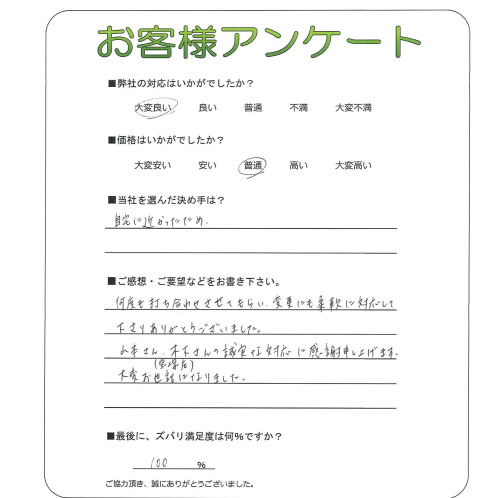 お客様アンケート
■弊社の対応はいかがでしたか?
大変良い 良い 普通 不満 大変不満
■価格はいかがでしたか?
大変安い 安い 普通 高い 大変高い
■当社を選んだ決め手は?
自宅に近かったため.
■ご感想・ご要望などをお書き下さい。
何度も打ち合わせさせてもらい、変更にも柔軟に対応して
下さりありがとうございました。
山本さん、木下さんの誠実な対応に感謝申し上げます.
大変お世話になりました。
■最後に、ズバリ満足度は何%ですか?
100 %
ご協力頂き、誠にありがとうございました。